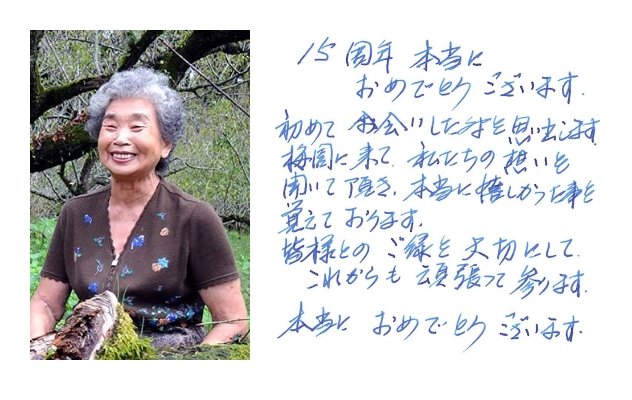 15周年 本当に
おめでとうございます.
初めてお会いした時を思い出します
梅園に来て、私たちの想いを
聞いて頂き、本当に嬉しかった事を
覚えております.
皆様とのご縁を大切にして
これからも頑張って参ります.
本当に おめでとうございます.